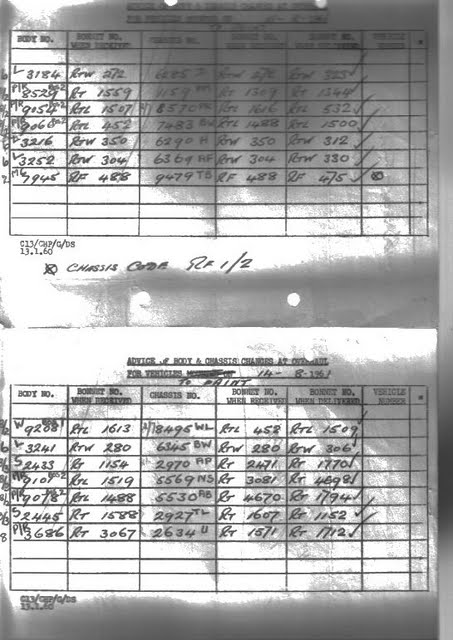 ADVICE OF BODY & CHASSIS CHANGES AT
FOR VEHICLES 14-8-196
BODY NO. BONNET NO. WHEN RECEIVED CHASSIS NO. BONNET NO. WHEN RECEIVED BONNET NO. WHEN DELIVERED VEHICLE
L 3184 RTW 272 RTW 323
RT 1559 1159 RT 1309 RT 1344
RTL 1507 8570 RTL 1616 RTL 532
RTL 452 7483 RTL 1488 RTL 1500
3216 RTW 350 6290 H RTW 350 RTW 312
L 3252 RTW 304 6369 HF RTW 304 RTW 330
7945 RF 488 9479 TB RF 488 RF 475
C13/CHP/G/DS
13.1.60
CHASSIS CODE RF 1/2
ADVICE OF BODY & CHASSIS CHANGES AT OVERHAUL
FOR VEHICLES 14-8-196
TO PAINT
BODY NO. BONNET NO. WHEN RECEIVED CHASSIS NO. BONNET NO. WHEN RECEIVED BONNET NO. WHEN DELIVERED VEHICLE NUMBER
W RTL 1613 8495 WL RTL 458 RTL 1509
L 3241 RTW 280 6345 BW RTW 280 RTW 306
S 2433 RT 1154 2970 AP RT 2471 RT 1770
RTL 1519 5569 NS RT 3081 RT 4898
RTL 1488 5530 AB RT 4670 RT 1794
S 2445 RT 1588 2927 TL RT 1607 RT 1152
P/R 3686 RT 3067 2634 U RT 1571 RT 1712
C13/CHP/G/DS
13.1.60